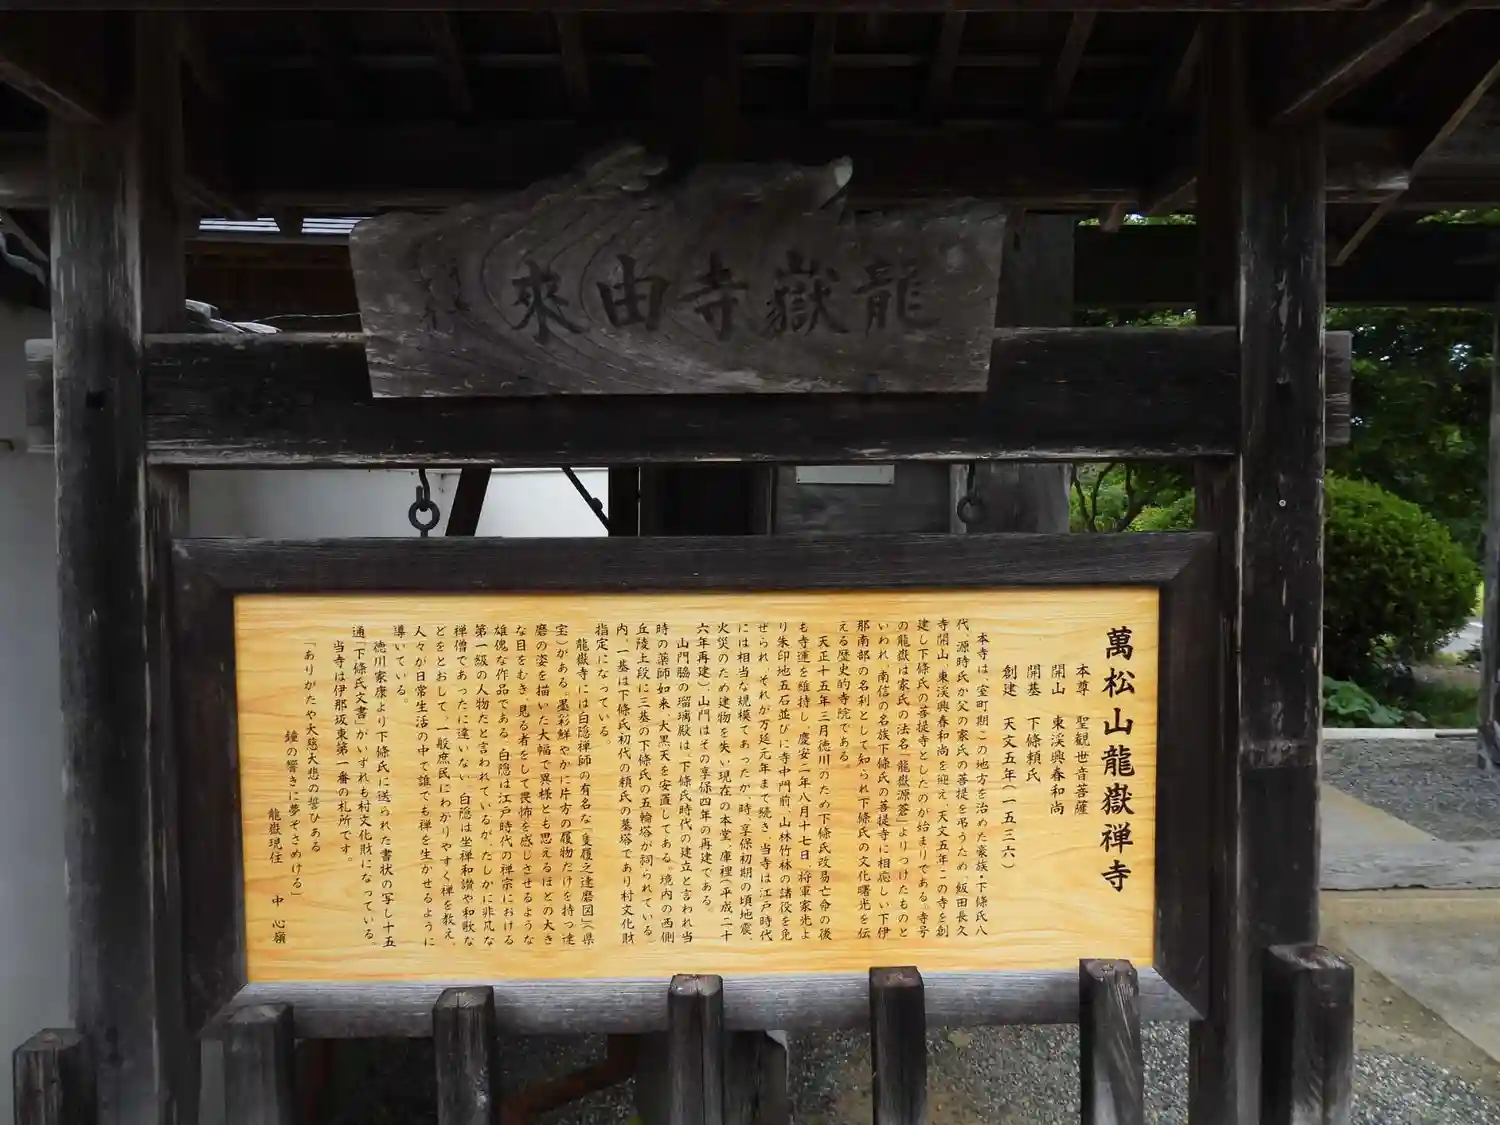 龍嶽寺由来
萬松山龍嶽禅寺
本尊　聖観世音菩薩
開山　東渓興春和尚
開基　下條頼氏
創建　天文五年(一五三六)
本寺は、室町期この地方を治めた豪族・下條氏八
代、源時氏が父の家氏の菩提を弔うため、飯田長久
寺開山、東渓興春和尚を迎え、天文五年この寺を創
建し下條氏の菩提寺としたのが始まりである。寺号
の龍嶽は家氏の法名「龍嶽源蒼」よりつけたものと
いわれ、南信の名族下條氏の菩提寺に相応しい下伊
那南部の名刹として知られ下條氏の文化曙光を伝
える歴史的寺院である。
天正十五年三月徳川のため下條氏改易亡命の後
も寺運を維持し、慶安二年八月十七日、将軍家光よ
り朱印地五石並びに寺中門前、山林竹林の諸役を免
ぜられ、それが万延元年まで続き、当寺は江戸時代
には相当な規模であったが、時、享保初期の頃地震、
火災のため建物を失い現在の本堂、庫裡(平成二十
六年再建)、山門はその享保四年の再建である。
山門脇の瑠璃殿は、下條氏時代の建立と言われ当
時の薬師如来、大黒天を安置してある。境内の西側
丘陵土段に三基の下條氏の五輪塔が祠られている。
内、一基は下條氏初代の頼氏の墓塔であり村文化財
指定になっている。
龍嶽寺には白隠禅師の有名な「隻履之達磨図」(県
宝)がある。墨彩鮮やかに片方の履物だけを持つ達
磨の姿を描いた大幅で異様とも思えるほどの大き
な目をむき、見る者をして畏怖を感じさせるような
雄傀な作品である。白隠は江戸時代の禅宗における
第一級の人物だと言われているが、たしかに非凡な
禅僧であったに違いない。白隠は坐禅和讃や和歌な
どをとおして、一般庶民にわかりやすく禅を教え、
人々が日常生活の中で誰でも禅を生かせるように
導いている。
徳川家康より下條氏に送られた書状の写し十五
通「下條氏文書」がいずれも村文化財になっている。
当寺は伊那坂東第一番の札所です。
「ありがたや大慈大悲の誓ひある
鐘の響きに夢ぞさめける」
龍嶽現住　中　心嶺